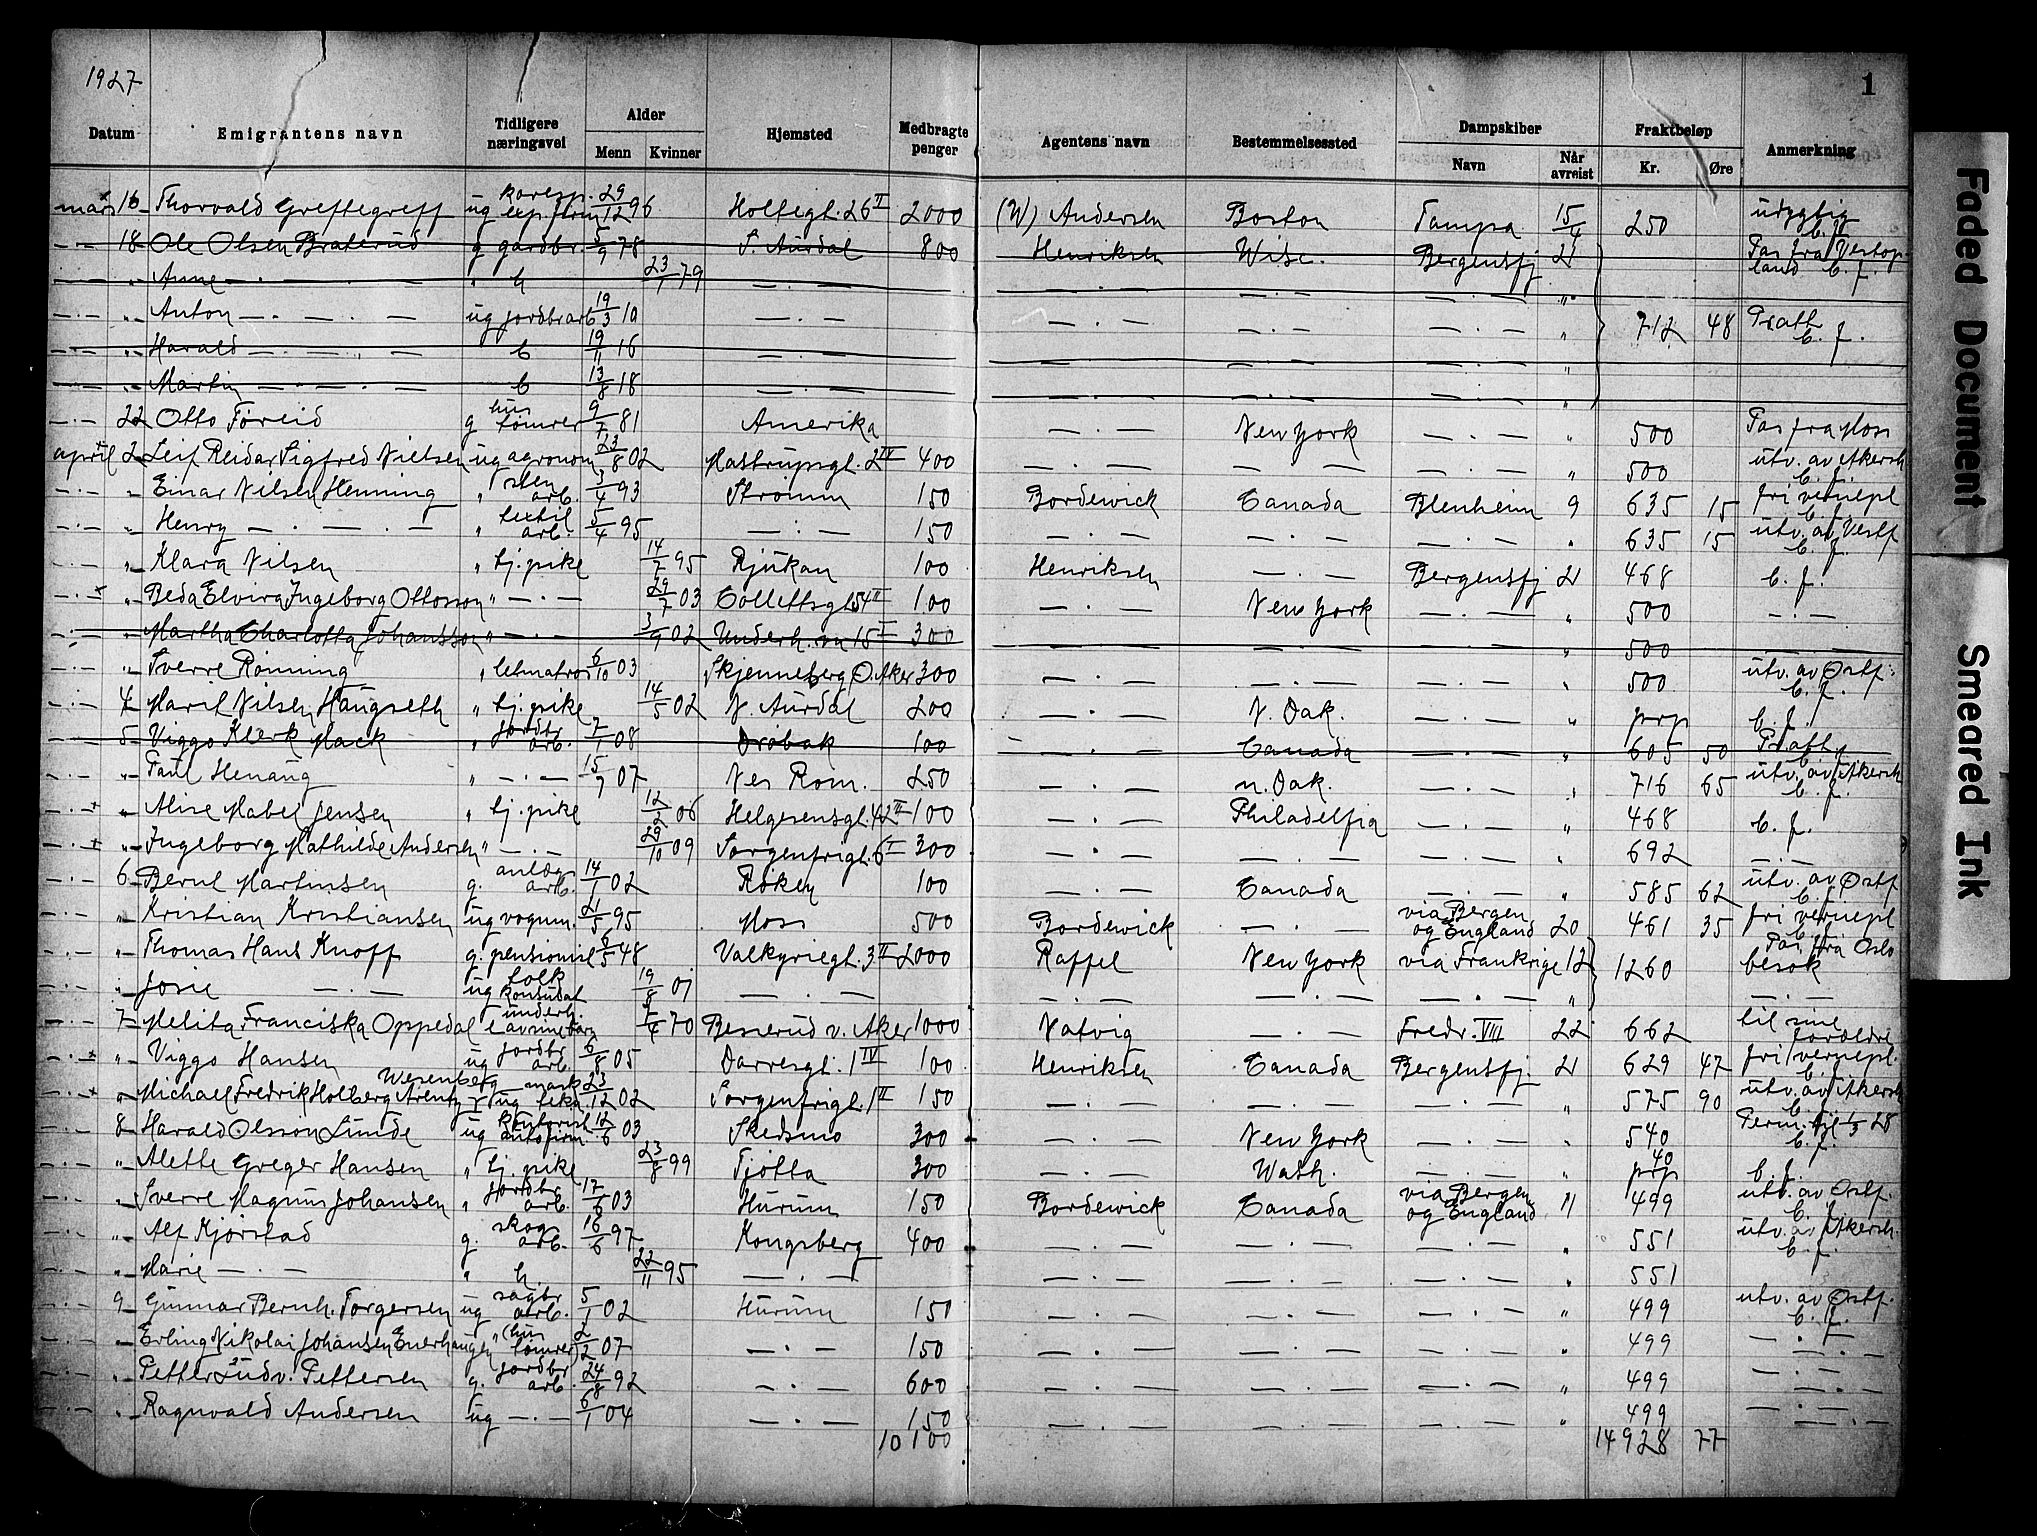 1927
1
Datum Emigrantens navn Tidligere næringsvei Alder Menn Kvinner Hjemsted Medbragte penger Agentens navn Bestemmelsessted Dampskiber Navn Når avreist Fraktbeløp Kr. Øre Anmerkning
mars 16 Thorvald Greftegreff ug koresp. exp. firm 29/12 96 Holtegt. 26 II 2000 (W) Andersen Boston Tampa 15/4 250 udygtig b. f.
-·- 18 Ole Olsen Braterud g gardbr. 5/9 78 S. Aurdal 800 Henriksen Wisc. Bergensfj 21 Pas fra Vestop-
-·- " Anne -·-·- " h 23/1 79 -·- -·- -·- -·- " land b. f.
-·- " Anton -·-·- ug jordbrarb 19/3 10 -·- -·- -·- -·- " 712 48 b. f.
-·- " Harald -·-·- b 19/11 16 -·- -·- -·- -·- "
-·- " Martin -·-·- b 13/8 18 -·- -·- -·- -·- "
-·- 22 Otto Føreid g hus tømrer 9/7 81 Amerika -·- New York -·- " 500 Pas fra Moss
april 2 Leif Reidar Sigfred Nielsen ug agronom 23/8 02 Mastrupsgt. 2 IV 400 -·- -·- -·- " 500 utv. av Akersh b. f.
-·- " Einar Nilsen Henning " sten arb. 3/4 93 Strømm 150 Bordewick Canada Blenheim 9 635 15 fri vernepl b. f.
-·- " Henry -·-·- " textil arb. 5/4 95 -·- 150 -·- -·- -·- " 635 15 utv. av Vestf b. f.
-·- " Klara Nilsen " tj. pike 14/7 95 Rjukan 100 Henriksen -·- Bergensfj 21 468 b. f.
-·- + " Beda Elvira Ingeborg Ottosson " -·- 29/7 03 Collettsgt 54 II 100 -·- New York -·- " 500 -·-
-·- " Martha Charlotta Johansson " -·- 3/9 02 Underh. vn 15 I 300 -·- -·- -·- " 500
-·- " Sverre Rønning " letmatros 6/10 03 Skjenneberg Ø. Aker 300 -·- -·- -·- " 500 utv. av Østf. b. f.
-·- 4 Marit Nilsen Haugseth " tj. pike 14/5 02 N. Aurdal 200 -·- N. Dak. -·- " prp b. f.
-·- 5 Viggo Klerk Mack " jordbr arb. 7/1 08 Drøbak 100 -·- Canada -·- " 605 50
-·- " Paul Henaug " -·- 15/7 07 Nes Rom. 250 -·- n. Dak. -·- " 716 65 utv. av Akersh b. f.
-·- + " Alise Mabel Jensen " tj. pike 12/2 06 Helgesensgt. 42 II 100 -·- Philadelfia -·- " 468 b. f.
-·- + " Ingeborg Mathilde Andersen " -·- 29/10 09 Sorgenfrigt. 6 I 300 -·- -·- -·- " 692 -·-
-·- 6 Bernt Martinsen g. anlæg arb. 14/1 02 Røken 100 -·- Canada -·- " 585 62 utv. av Østf b. f.
-·- " Kristian Kristiansen ug vognm. 21/5 95 Moss 500 Bordewick -·- via Bergen og England 20 461 35 fri vernepl b. f.
-·- " Thomas Hans Knoff g. pensionist 6/5 48 Valkyriegt. 3 II 2000 Raffel New York via Frankrige 12 1260 Pas fra Oslo besøk
-·- " Josie -·- ug tolk konsulat 19/8 07 -·- -·- -·- -·- " -·-
-·- 7 Melita Franciska Oppedal e underh. av sine barn 5/4 70 Besserud v. Aker 1000 Natvig -·- Fredr. VIII 22 662 til sine foreldre
-·- + " Viggo Hansen ug jordbr arb. 6/8 05 Darresgt. 1 IV 100 Henriksen Canada Bergensfj. 21 629 47 fri vernepl. b. f.
-·- + " Michael Fredrik Holberg Arentz Wesenberg ug mask tekn. 23/12 02 Sorgenfrigt. 1 II 150 -·- -·- -·- " 575 90 utv. av Akersh b. f.
-·- 8 Harald Olsson Lunde ug kontorist autofirm 12/6 03 Skedsmo 300 -·- New York -·- " 540 Perm. til 1/3 28 b. f.
-·- " Alette Greger Hansen " tj. pike 23/8 99 Tjøtta 300 -·- Wash. -·- " 40 prp b. f.
-·- " Sverre Magnus Johansen " jordbr arb. 17/6 03 Hurum 150 Bordewick Canada via Bergen og England 11 499 utv. av Østf. b. f.
-·- " Alf Kjørstad g. skog arb. 16/6 97 Kongsberg 400 -·- -·- -·- " 551 utv. av Akersh. b. f.
-·- " Marie -·- " h. 22/11 95 -·- -·- -·- -·- " 551
-·- 9 Gunnar Bernh. Torgersen ug sagbr arb. 5/1 02 Hurum 150 -·- -·- -·- " 499 utv. av Østf. b. f.
-·- " Erling Nikolai Johansen Enerhaugen " (hus tømrer) 2/2 07 -·- 150 -·- -·- -·- " 499 -·-
-·- " Petter Ludv. Pettersen g. jordbr arb. 24/8 92 -·- 600 -·- -·- -·- " 499 -·-
-·- " Ragnvald Andersen ug -·- 6/1 04 -·- 150 -·- -·- -·- " 499 -·-
10100 14928 77
Faded Document
Smeared Ink